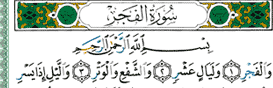 سُورَةُ الفَجْرِ
بِسْمِ اللَّهِ الرَّحْمَٰنِ الرَّحِيمِ
وَالْفَجْرِ ۝١ وَلَيَالٍ عَشْرٍ ۝٢ وَالشَّفْعِ وَالْوَتْرِ ۝٣ وَاللَّيْلِ إِذَا يَسْرِ